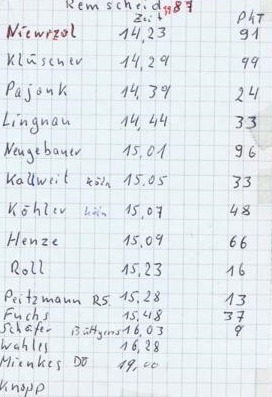 Remscheid 1987
Zeit PKT
Niewrzol 14,23 91
Klüscner 14,29 99
Pajonk 14,39 24
Lingnau 14,44 33
Neugebauer 15,01 96
Kallweit Köln 15,05 33
Köhler Köln 15,07 48
Henze 15,09 66
Roll 15,23 16
Peitzmann RS. 15,28 13
Fuchs 15,48 37
Schäfer Büttgens 16,03 9
Wahles 16,28
Mienkes DO 19,00
Knopp